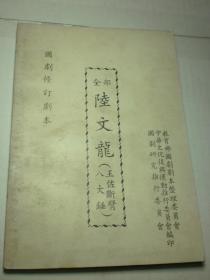 國劇修訂劇本
全部
陸文龍
(王佐斷臂
八大錘)
教育部國劇劇本整理委員會
中華文化復興運動推行委員會編印
國劇研究推行委員會